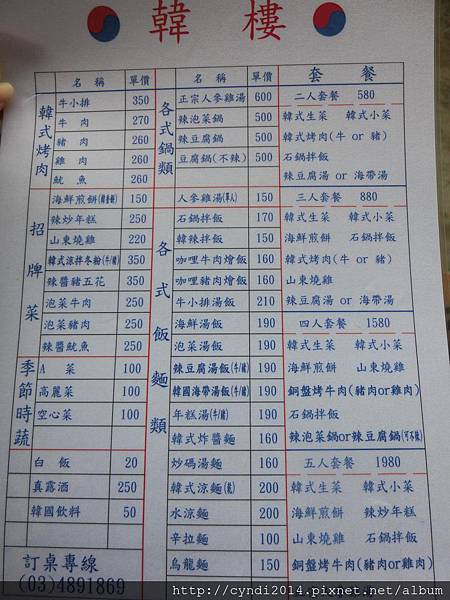 韓樓
名稱 單價
韓式烤肉
牛小排 350
牛肉 270
豬肉 260
雞肉 260
魷魚 260
招牌菜
海鮮煎餅 150
辣炒年糕 250
山東燒雞 220
韓式涼拌冬粉(牛/豬) 350
辣醬豬五花 350
泡菜牛肉 250
泡菜豬肉 250
辣醬魷魚 250
季節時蔬
A菜 100
高麗菜 100
空心菜 100
白飯 20
真露酒 250
韓國飲料 50
訂桌專線
(03)4891869
名稱 單價
各式鍋類
正宗人參雞湯 600
辣泡菜鍋 500
辣豆腐鍋 500
豆腐鍋(不辣) 500
各式飯麵類
人參雞湯(單人) 150
石鍋拌飯 170
韓辣拌飯 150
咖哩牛肉燴飯 160
咖哩豬肉燴飯 160
牛小排湯飯 210
海鮮湯飯 190
泡菜湯飯 190
辣豆腐湯飯(牛/豬) 190
韓國海帶湯飯(牛/豬) 190
年糕湯(牛/豬) 190
韓式炸醬麵 160
炒碼湯麵 160
韓式涼麵 200
水涼麵 200
辛拉麵 100
烏龍麵 150
套餐
二人套餐 580
韓式生菜 韓式小菜
韓式烤肉(牛 or 豬)
石鍋拌飯
辣豆腐湯 or 海帶湯
三人套餐 880
韓式生菜 韓式小菜
海鮮煎餅 石鍋拌飯
韓式烤肉(牛 or 豬)
山東燒雞
辣豆腐湯 or 海帶湯
四人套餐 1580
韓式生菜 韓式小菜
海鮮煎餅 山東燒雞
銅盤烤牛肉(豬肉or雞肉)
石鍋拌飯
辣泡菜鍋or辣豆腐鍋(可不辣)
五人套餐 1980
韓式生菜 韓式小菜
海鮮煎餅 辣炒年糕
山東燒雞 石鍋拌飯
銅盤烤牛肉(豬肉or雞肉)
http://cyndi2014.pixnet.net/album